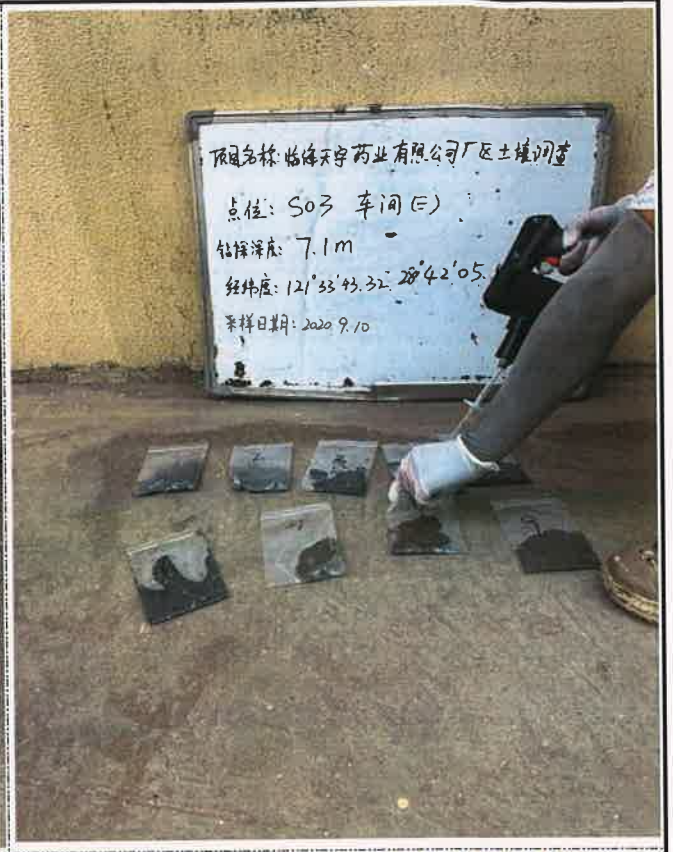 项目名称:临海天宇药业有限公司厂区土壤调查
点位: S03 车间(三)
钻探深度: 7.1m
经纬度: 121°33′43.32″ 28°42′05.
采样日期: 2020.9.10